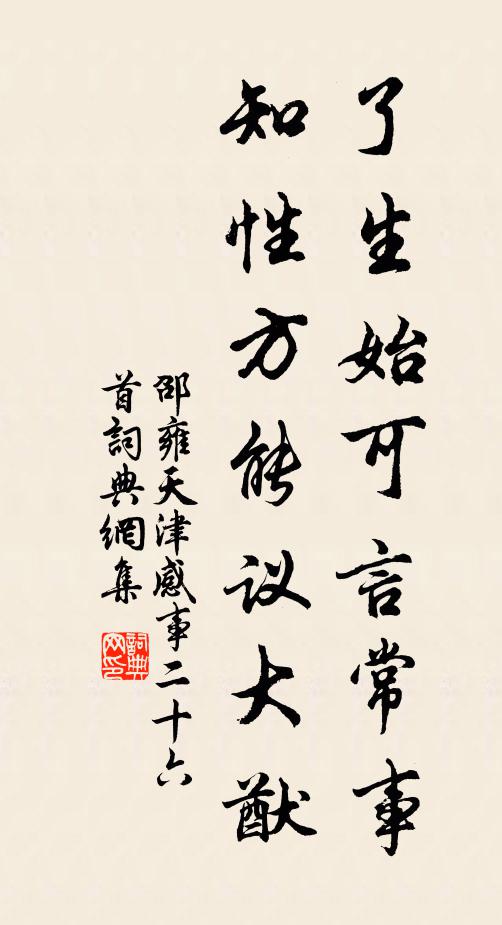 了生始可言常事
知性方能议大猷
邵雍天津感事二十六
首詞典網集
詞典網印